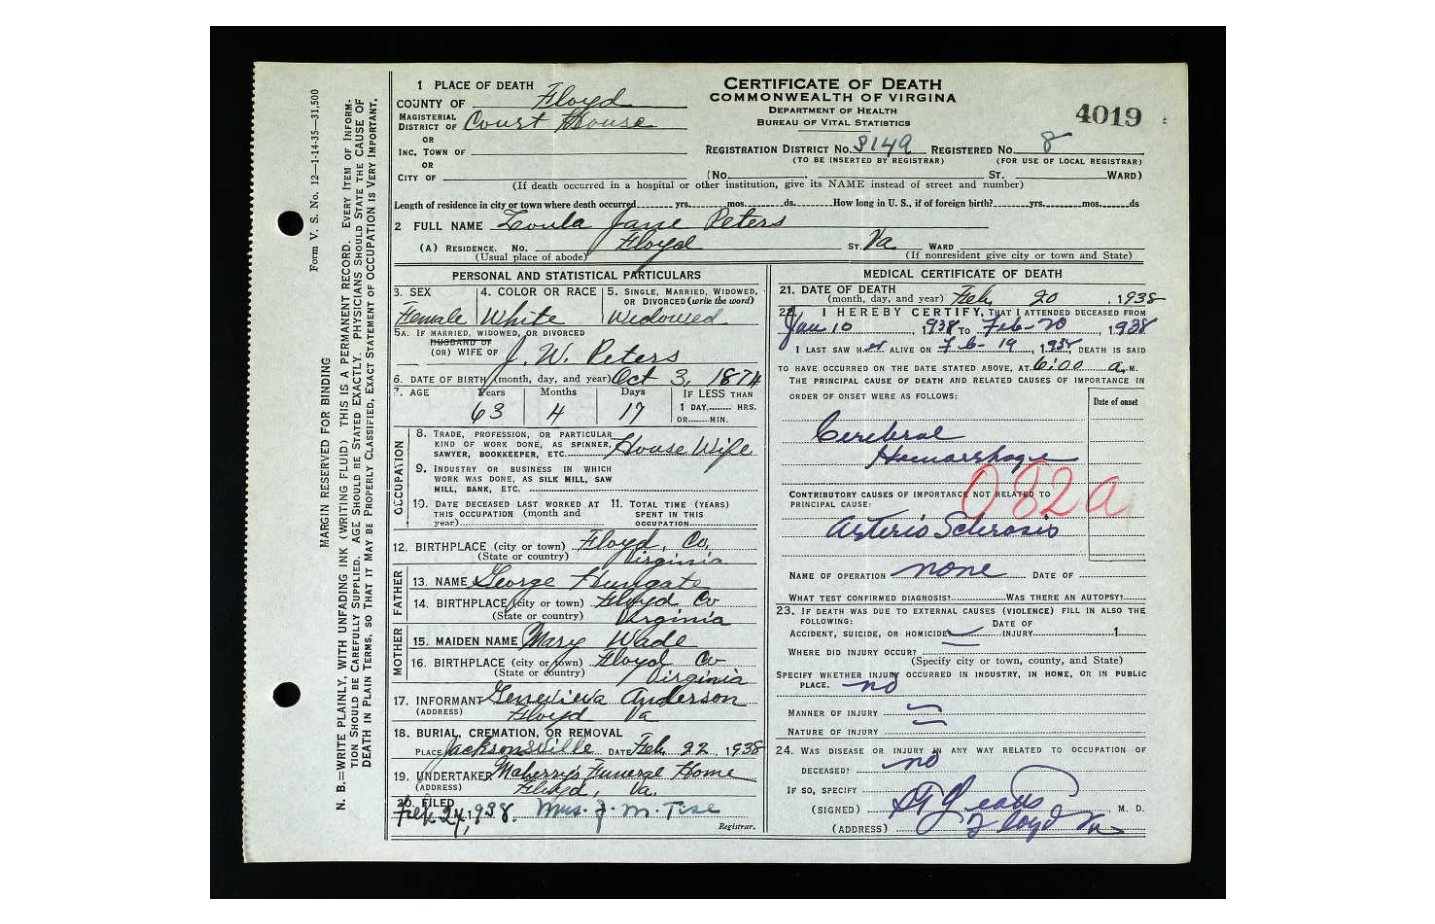 Form V. S. No. 12—1-14-35—31,500
MARGIN RESERVED FOR BINDING
N. B.—WRITE PLAINLY, WITH UNFADING INK (WRITING FLUID) THIS IS A PERMANENT RECORD. EVERY ITEM OF INFORM-
TION SHOULD BE CAREFULLY SUPPLIED. AGE SHOULD BE STATED EXACTLY. PHYSICIANS SHOULD STATE THE CAUSE OF
DEATH IN PLAIN TERMS, SO THAT IT MAY BE PROPERLY CLASSIFIED, EXACT STATEMENT OF OCCUPATION IS VERY IMPORTANT.
CERTIFICATE OF DEATH
COMMONWEALTH OF VIRGINIA
DEPARTMENT OF HEALTH
BUREAU OF VITAL STATISTICS
4019
1 PLACE OF DEATH
COUNTY OF Floyd
MAGISTERIAL
DISTRICT OF Court House
OR
INC. TOWN OF
OR
CITY OF
REGISTRATION DISTRICT No. 3149 REGISTERED No. 8
(TO BE INSERTED BY REGISTRAR) (FOR USE OF LOCAL REGISTRAR)
(No. , ST. WARD)
(If death occurred in a hospital or other institution, give its NAME instead of street and number)
Length of residence in city or town where death occurred yrs. mos. ds. How long in U. S., if of foreign birth? yrs. mos. ds
2 FULL NAME Loula Jane Peters
(A) RESIDENCE. No. Floyd ST. Va. WARD
(Usual place of abode) (If nonresident give city or town and State)
PERSONAL AND STATISTICAL PARTICULARS
3. SEX 4. COLOR OR RACE 5. SINGLE, MARRIED, WIDOWED,
OR DIVORCED (write the word)
Female White Widowed
5A. IF MARRIED, WIDOWED, OR DIVORCED
HUSBAND OF
(OR) WIFE OF J. W. Peters
6. DATE OF BIRTH (month, day, and year) Oct 3, 1874
7. AGE Years Months Days IF LESS THAN
63 4 17 1 DAY, HRS.
OR MIN.
OCCUPATION
8. TRADE, PROFESSION, OR PARTICULAR
KIND OF WORK DONE, AS SPINNER,
SAWYER, BOOKKEEPER, ETC. House Wife
9. INDUSTRY OR BUSINESS IN WHICH
WORK WAS DONE, AS SILK MILL, SAW
MILL, BANK, ETC.
10. DATE DECEASED LAST WORKED AT 11. TOTAL TIME (YEARS)
THIS OCCUPATION (month and SPENT IN THIS
year) OCCUPATION
12. BIRTHPLACE (city or town) Floyd, Co,
(State or country) Virginia
FATHER
13. NAME George Hungate
14. BIRTHPLACE (city or town) Floyd Co
(State or country) Virginia
MOTHER
15. MAIDEN NAME Mary Wade
16. BIRTHPLACE (city or town) Floyd Co
(State or country) Virginia
17. INFORMANT Genevieva Anderson
(ADDRESS) Floyd Va
18. BURIAL, CREMATION, OR REMOVAL
PLACE Jacksonville DATE Feb. 22, 1938
19. UNDERTAKER Maberry's Funeral Home
(ADDRESS) Floyd, Va.
20. FILED
Feb. 24, 1938. Mrs. J. M. Tise
Registrar.
MEDICAL CERTIFICATE OF DEATH
21. DATE OF DEATH
(month, day, and year) Feb. 20, 1938
22. I HEREBY CERTIFY, THAT I ATTENDED DECEASED FROM
Jan 10, 1938 TO Feb-20, 1938
I LAST SAW her ALIVE ON Feb-19, 1938, DEATH IS SAID
TO HAVE OCCURRED ON THE DATE STATED ABOVE, AT 6:00 a. M.
THE PRINCIPAL CAUSE OF DEATH AND RELATED CAUSES OF IMPORTANCE IN
ORDER OF ONSET WERE AS FOLLOWS:
Date of onset
Cerebral
Hemorrhage
082a
CONTRIBUTORY CAUSES OF IMPORTANCE NOT RELATED TO
PRINCIPAL CAUSE:
Arterio Sclerosis
NAME OF OPERATION none DATE OF
WHAT TEST CONFIRMED DIAGNOSIS? WAS THERE AN AUTOPSY?
23. IF DEATH WAS DUE TO EXTERNAL CAUSES (VIOLENCE) FILL IN ALSO THE
FOLLOWING:
DATE OF
ACCIDENT, SUICIDE, OR HOMICIDE INJURY 1
WHERE DID INJURY OCCUR?
(Specify city or town, county, and State)
SPECIFY WHETHER INJURY OCCURRED IN INDUSTRY, IN HOME, OR IN PUBLIC
PLACE. no
MANNER OF INJURY
NATURE OF INJURY
24. WAS DISEASE OR INJURY IN ANY WAY RELATED TO OCCUPATION OF
DECEASED? no
IF SO, SPECIFY
(SIGNED) M. D.
(ADDRESS) Floyd Va